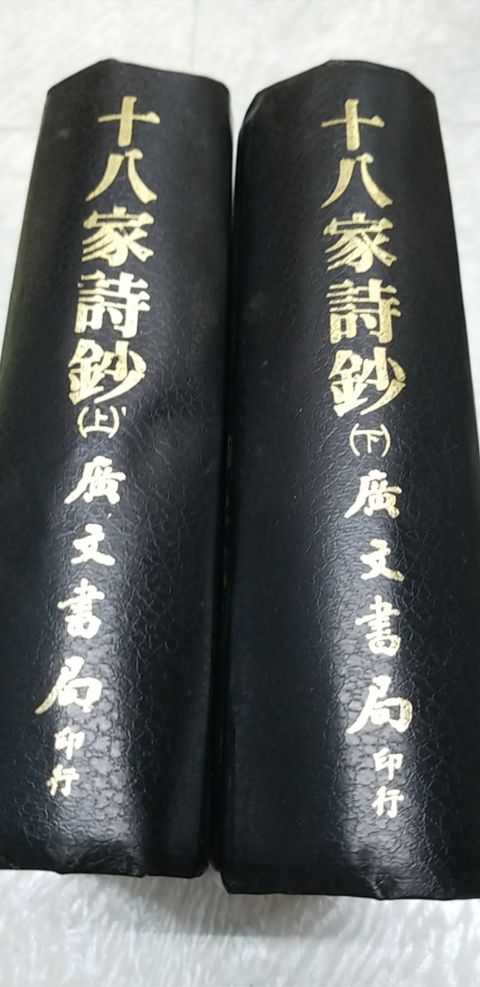 十八家詩鈔(上)廣文書局印行
十八家詩鈔(下)廣文書局印行